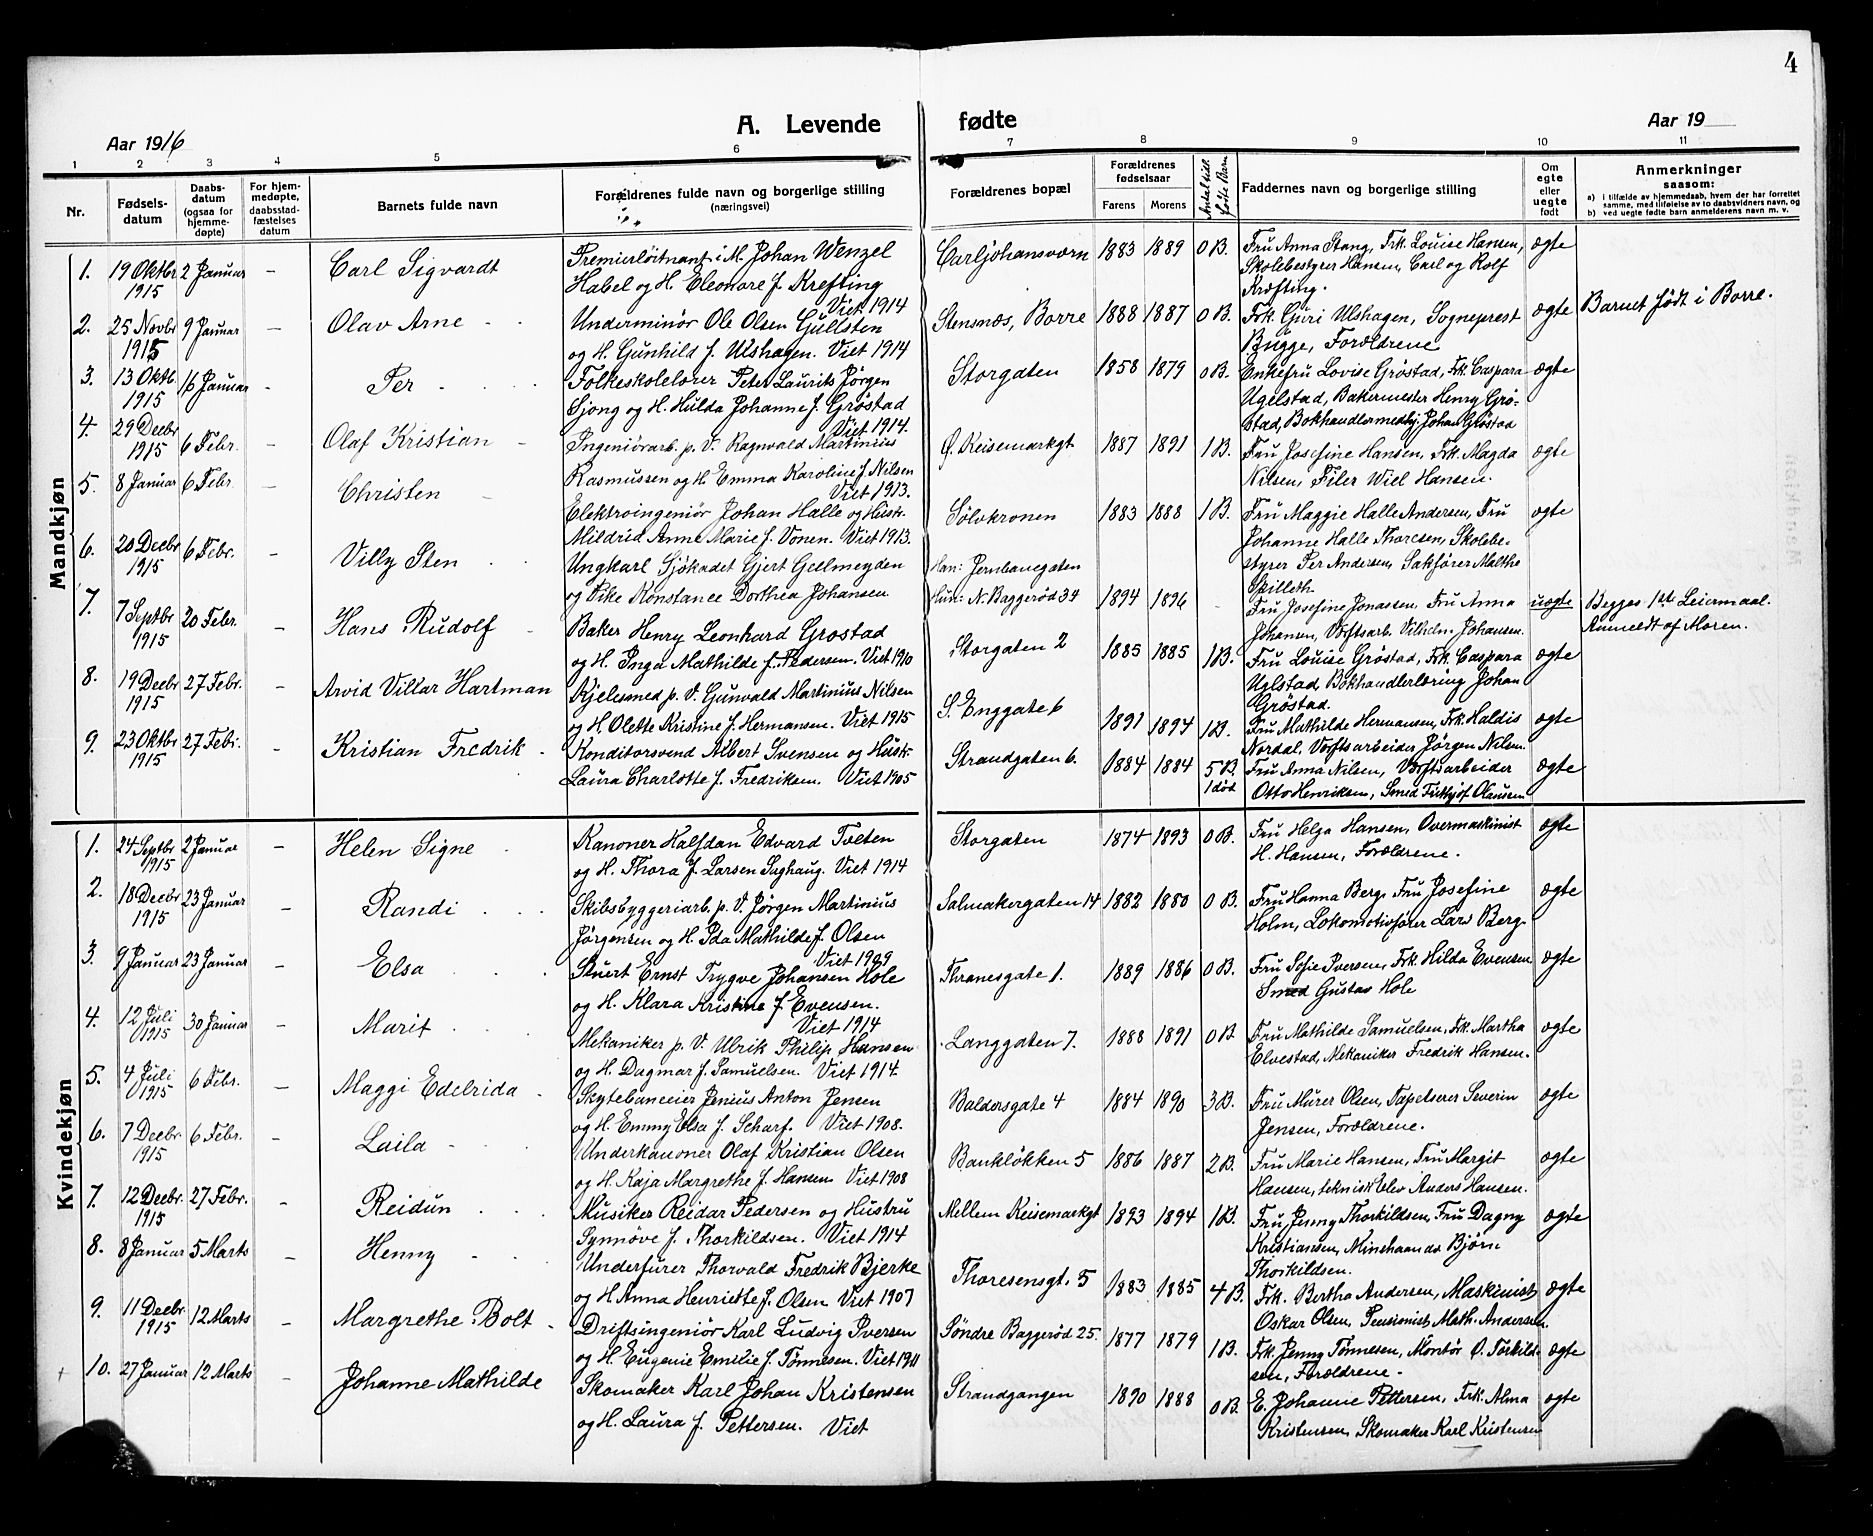 4
Aar 1916
A. Levende fødte
Aar 19
1 2 3 4 5 6 7 8 9 10 11
Nr.
Fødsels-datum
Daabs-datum (ogsaa for hjemme-døpte)
For hjem-medøpte, daabsstad-fæstelses datum
Barnets fulde navn
Forældrenes fulde navn og borgerlige stilling
(næringsvei)
Forældrenes bopæl
Forældrenes fødselsaar
Farens Morens
Antal tidl. fødte Barn
Faddernes navn og borgerlige stilling
Om egte eller uegte født
Anmerkninger
saasom:
a) i tilfælde av hjemmedaab, hvem der har forrettet samme, med tilføielse av to daabsvidners navn, og
b) ved uegte fødte barn anmelderens navn m. v.
Mandkjøn
1. 19 Oktbr 1915 2 Januar - Carl Sigvardt
Premierløitnant i M. Johan Wenzel
Habel og H. Eleonore f. Krefting
Viet 1914
Carljohansværn 1883 1889 0 B.
Fru Anna Stang, Frk. Louise Hansen,
Skolebestyrer Hansen, Carl og Rolf
Kræfting.
ægte
2. 25 Novbr 1915 9 Januar - Olav Arne
Underminør Ole Olsen Gullsten
og H. Gunhild f. Ulshagen. Viet 1914
Stensnæs, Borre 1888 1887 0 B.
Frk Guri Ulshagen, Sogneprest
Bugge, Forældrene
ægte
Barnet født i Borre.
3. 13 Oktb. 1915 16 Januar - Per
Folkeskolelærer Peter Laurits Jørgen
Sjong og H. Hulda Johanne f. Grøstad
Viet 1914.
Storgaten 1858 1879 0 B.
Enkefru Lovise Grøstad, Frk. Caspara
Ugelstad, Bakermester Henry Grø-
stad, Bokhandlermedhj. Johan Grøstad
ægte
4. 29 Decbr 1915 6 Febr. - Olaf Kristian
Ingeniørarb. p. V. Ragnvald Martinius
Rasmussen og H. Emma Karoline f. Nilsen
Viet 1913.
Ø. Keisemarkgt 1887 1891 1 B.
Fru Josefine Hansen, Frk. Magda
Nilsen, Filer Wiel Hansen.
ægte
5. 8 Januar 6 Febr. - Christen
Elektroingeniør Johan Halle og Hustr.
Mildrid Anne Marie f. Vonen. Viet 1913.
Sølvkronen 1883 1888 1 B.
Fru Maggie Halle Andersen, Fru
Johanne Halle Thoresen, Skolebe-
styrer Per Andersen, Sakfører Malthe
Skilleth.
ægte
6. 20 Decbr 1915 6 Febr. - Villy Sten
Ungkarl Sjökadet Gjert Gellmeyden
og Pike Konstance Dorthea Johansen
Han: Jernbanegaten
Hun: N. Baggerød 34 1894 1896 -
Fru Josefine Jonassen, Fru Anna
Johansen, Værftsarb. Vilhelm Johansen.
uægte
Begges 1st Leiermaal.
Anmeldt af Moren.
7. 7 Septbr 1915 20 Febr. - Hans Rudolf
Baker Henry Leonhard Grøstad
og H. Inga Mathilde f. Pedersen. Viet 1910
Storgaten 2 1885 1885 1 B.
Fru Louise Grøstad, Frk. Caspara
Uglstad, Bokhandlerlæring Johan
Grøstad.
ægte
8. 19 Decbr 1915 27 Febr. - Arvid Villar Hartman
Kjelesmed p. V. Gunvald Martinius Nilsen
og H. Olette Kristine f. Hermansen. Viet 1915
S. Enggate 6 1891 1894 1 B.
Fru Mathilde Hermansen, Frk. Haldis
Nordal, Værftsarbeider Jørgen Nilsen
ægte
9. 23 Oktbr 1915 27 Febr. - Kristian Fredrik
Konditorsvend Albert Svensen og Hustr.
Laura Charlotte f. Fredriksen. Viet 1905
Strandgaten 6. 1884 1884 5 B. 1 død
Fru Anna Nilsen, Værftsarbeider
Otto Henriksen, Smed Fritthjof Olaussen
ægte
Kvindekjøn
1. 24 Septbr 1915 2 Januar - Helen Signe
Kanoner Halfdan Edvard Tveten
og H. Thora f. Larsen Saghaug. Viet 1914
Storgaten 1874 1893 0 B.
Fru Helga Hansen, Overmaskinist
H. Hansen, Forældrene.
ægte
2. 18 Decbr 1915 23 Januar - Randi
Skibsbyggeriarb. p. V. Jørgen Martinius
Jørgensen og H. Ida Mathilde f. Olsen
Viet 1909
Salmakergaten 14 1882 1880 0 B.
Fru Hanna Berg, Fru Josefine
Holm, Lokomotivfører Lars Berg.
ægte
3. 9 Januar 23 Januar - Elsa
Stuert Ernst Trygve Johansen Hole
og H. Klara Kristine f. Evensen.
Viet 1914
Thranesgate 1. 1889 1886 0 B.
Fru Sofie Iversen, Frk. Hilda Evensen
Smed Gustav Hole
ægte
4. 12 Juli 1915 30 Januar - Marit
Mekaniker p. V. Ulrik Philip Hansen
og H. Dagmar f. Samuelsen. Viet 1914.
Langgaten 7. 1888 1891 0 B.
Fru Mathilde Samuelsen, Frk. Martha
Elvestad, Mekaniker Fredrik Hansen.
ægte
5. 4 Juli 1915 6 Febr. - Maggi Edelrida
Skytebaneeier Jenius Anton Jensen
og H. Emmy Elsa f. Scharf. Viet 1908.
Baldersgate 4 1884 1890 3 B.
Fru Murer Olsen, Tapetserer Severin
Jensen, Forældrene.
ægte
6. 7 Decbr. 1915 6 Febr. - Laila
Underkanoner Olaf Kristian Olsen
og H. Kaja Margrethe f. Hansen Viet 1908
Bankløkken 5 1886 1887 2 B.
Fru Marie Hansen, Fru Margit
Hansen, teknisk elev Anders Hansen.
ægte
7. 12 Decbr. 1915 27 Febr. - Reidun
Musiker Reidar Pedersen og Hustru
Synnöve f. Thorkildsen. Viet 1914
Mellem Keisemarkgt 1893 1894 1 B.
Fru Jenny Thorkildsen, Fru Dagny
Kristiansen, Minehaand Bjørn
Thorkildsen.
ægte
8. 8 Januar 5 Marts - Henny
Underfurer Thorvald Fredrik Bjerke
og H. Anna Henriette f. Olsen Viet 1907
Thoresensgt. 5 1883 1885 4 B.
Frk. Bertha Andersen, Maskinist
Oskar Olsen, Pensionist Math. Andersen.
ægte
9. 11 Decbr. 1915 12 Marts - Margrethe Bolt
Driftsingeniör Karl Ludvig Iversen
og H. Eugenie Emilie f. Tønnesen. Viet 1911
Søndre Baggerød 25. 1877 1879 1 B.
Frk. Jenny Tønnesen, Montør O. Torkild-
sen, Forældrene.
ægte
10. 27 Januar 12 Marts - Johanne Mathilde
Skomaker Karl Johan Kristensen
og H. Laura f. Pettersen. Viet
Strandgangen 1890 1888 0 B.
E. Johanne Pettersen, Frk. Alma
Kristensen, Skomaker Karl Kristensen
ægte